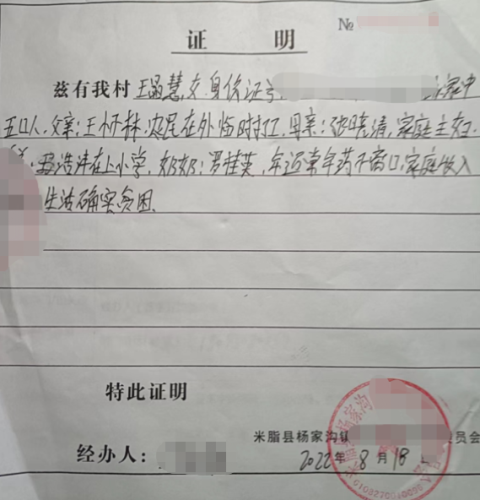 证 明
№
兹有我村 王晶慧,女,身份证号 家中
五口人,父亲:王怀林,农民在外临时打工,母亲:张晓清,家庭主妇
浩沣在上小学,奶奶:罗桂英,年迈常年药不离口,家庭收入
生活确实贫困.
特此证明
米脂县杨家沟镇 员会
经办人: 2022年 8月 18日